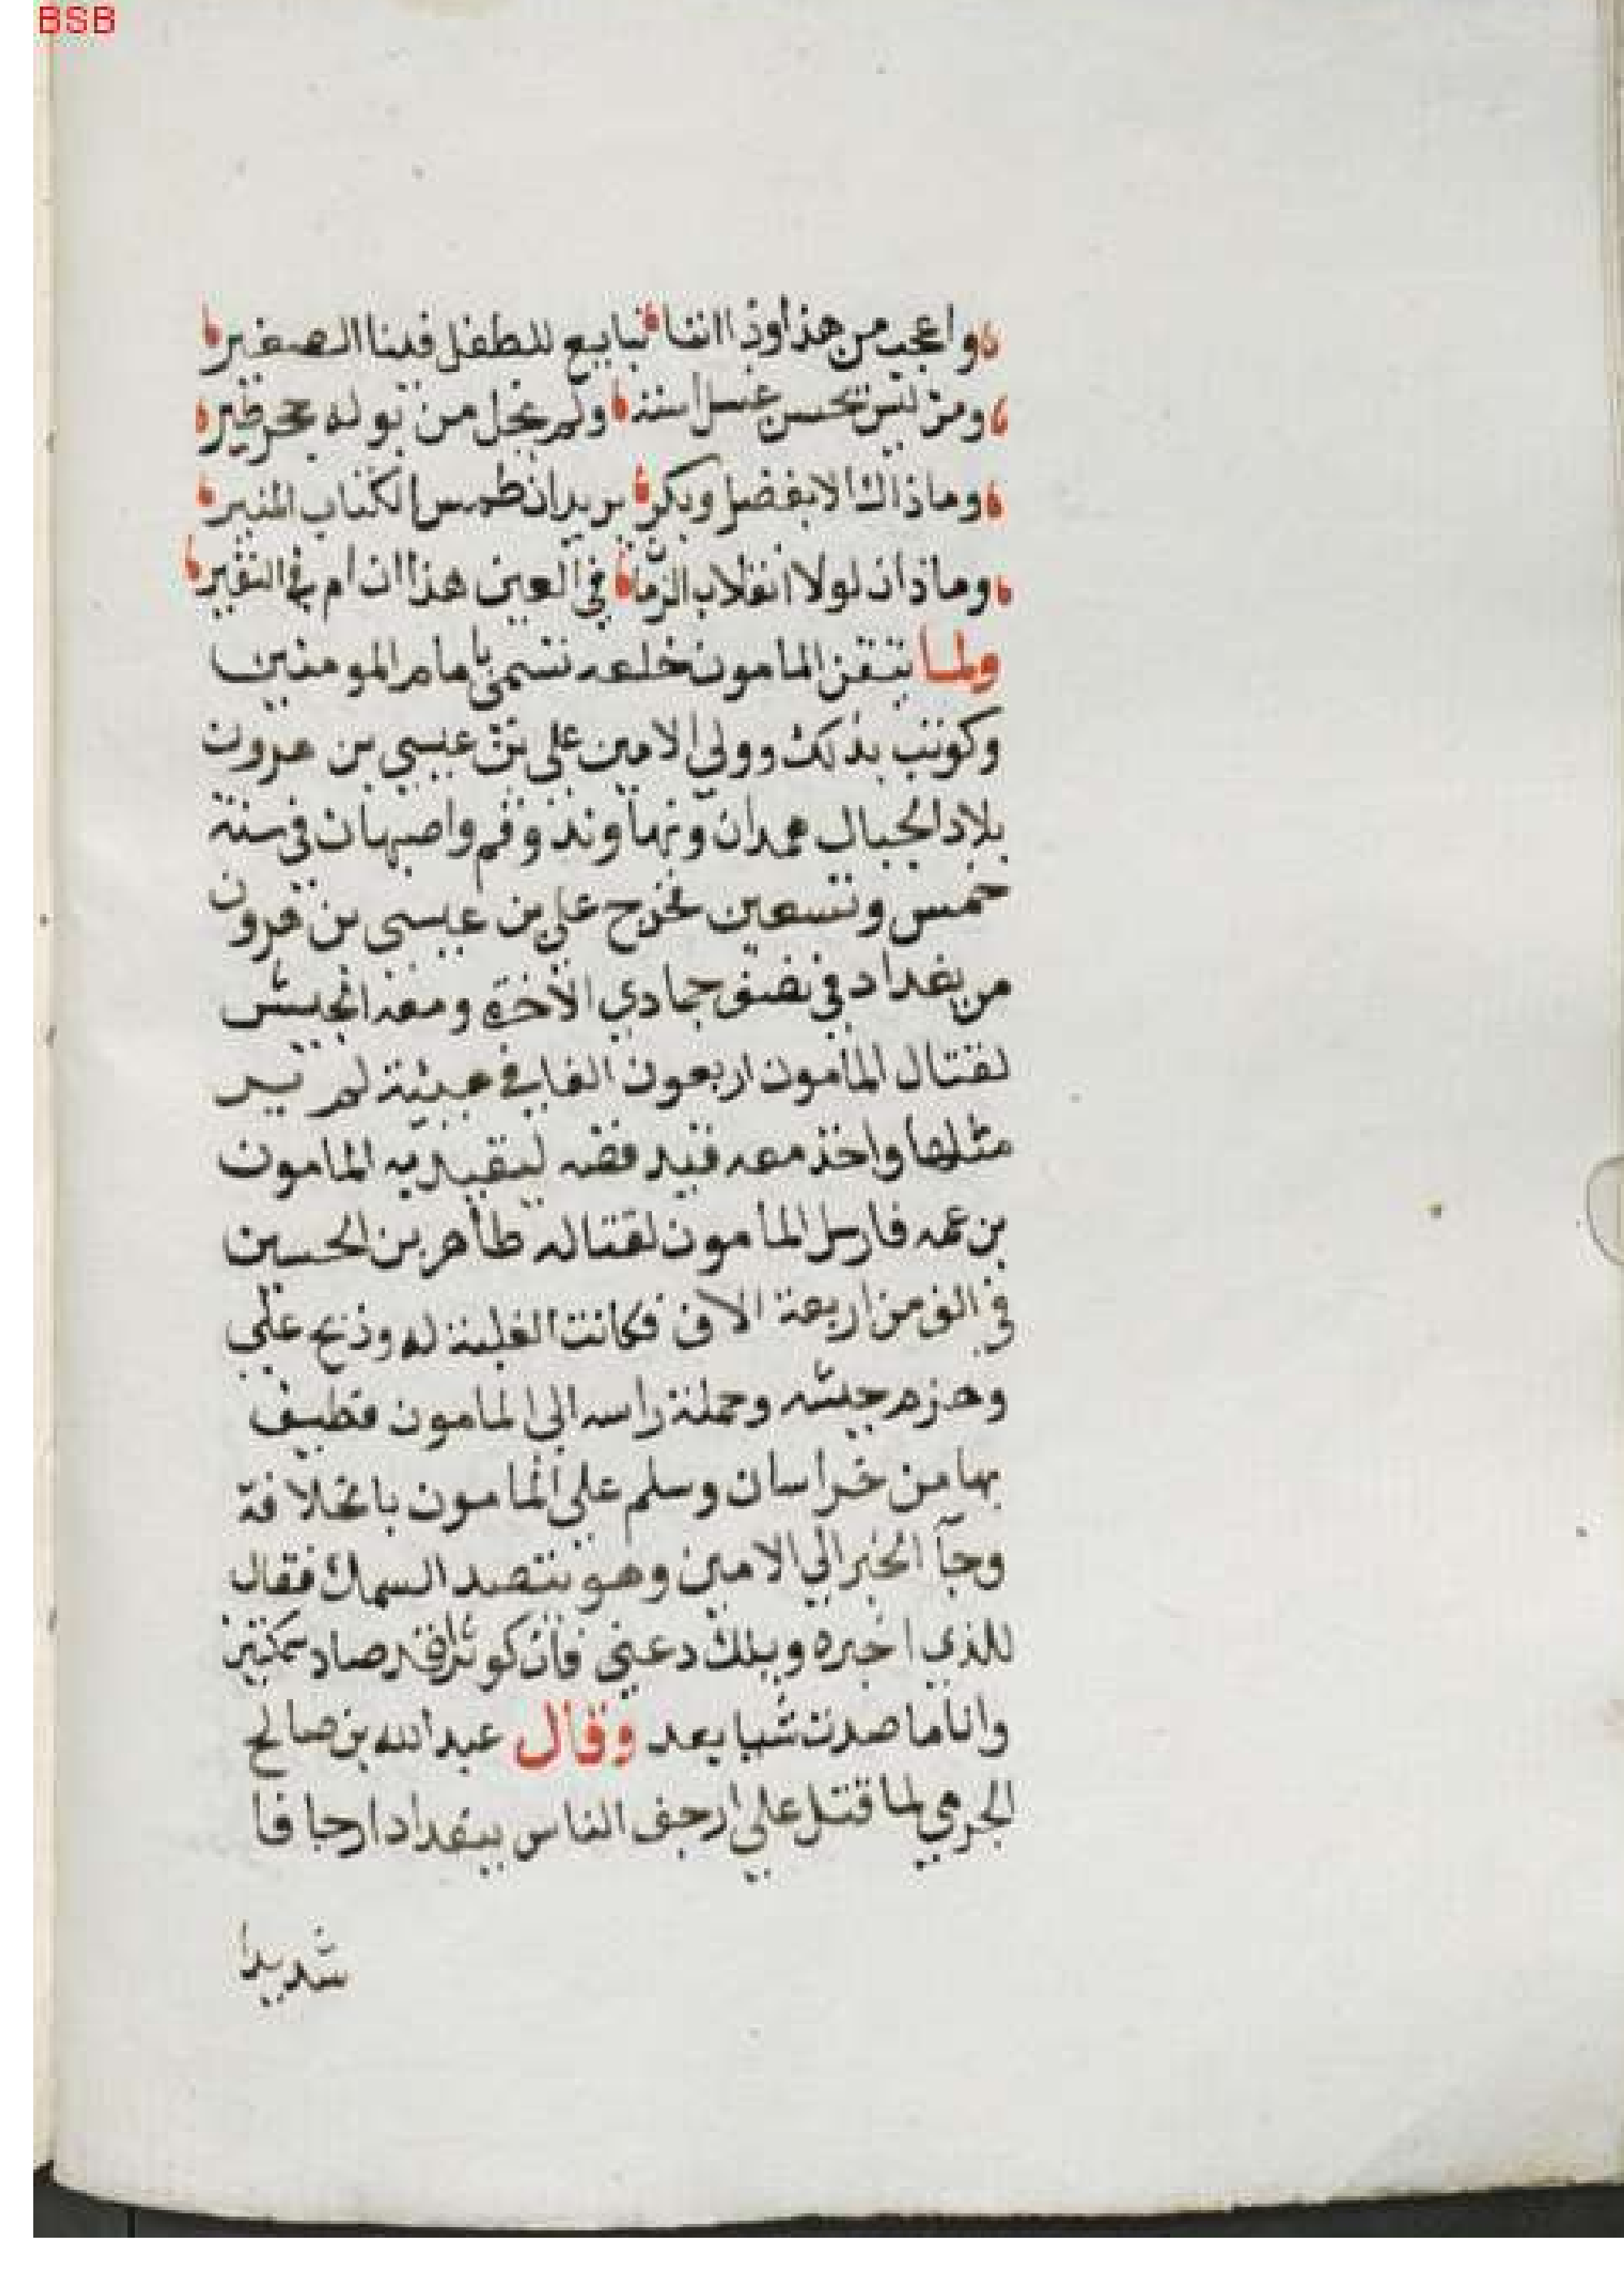 BSB
واعجب من هذا وذا اننا نبايع للطفل فينا الصغير
ومن ليس يحسن غسل استه ولم يخل من بوله حجر ظير
وما ذاك الا بفضل وبكر يريدان طمس الكتاب المنير
وماذان لولا انقلاب الزمان في العين هذا ان ام في النفير
ولما تيقن المامون خلعه تسمى بامام المومنين
وكوتب بذلك وولي الامين علي بن عيسي بن هرون
بلاد الجبال همدان ونهاوند وقم واصبهان في سنة
خمس وتسعين فخرج علي بن عيسى بن هرون
من بغداد في نصف جمادي الاخرة ومعه الجيش
لقتال المامون اربعون الفا في هيئة لم ير
مثلها واخذ معه قيد فضه ليقيد به المامون
بن عمه فارسل المامون لقتاله طاهر بن الحسين
في الف من اربعة الاف فكانت الغلبة له وذبح علي
وهزم جيشه وحملة راسه الي المامون فطيف
بها من خراسان وسلم على المامون بالخلافة
وجآ الخبر الي الامين وهو يتصيد السمك فقال
للذي اخبره ويلك دعيني فان كوثرا قد صاد سمكتين
وانا ما صدت شيا بعد وقال عبد الله بن صالح
الجرمي لما قتل علي ارجف الناس ببغداد ارجافا
شديدا